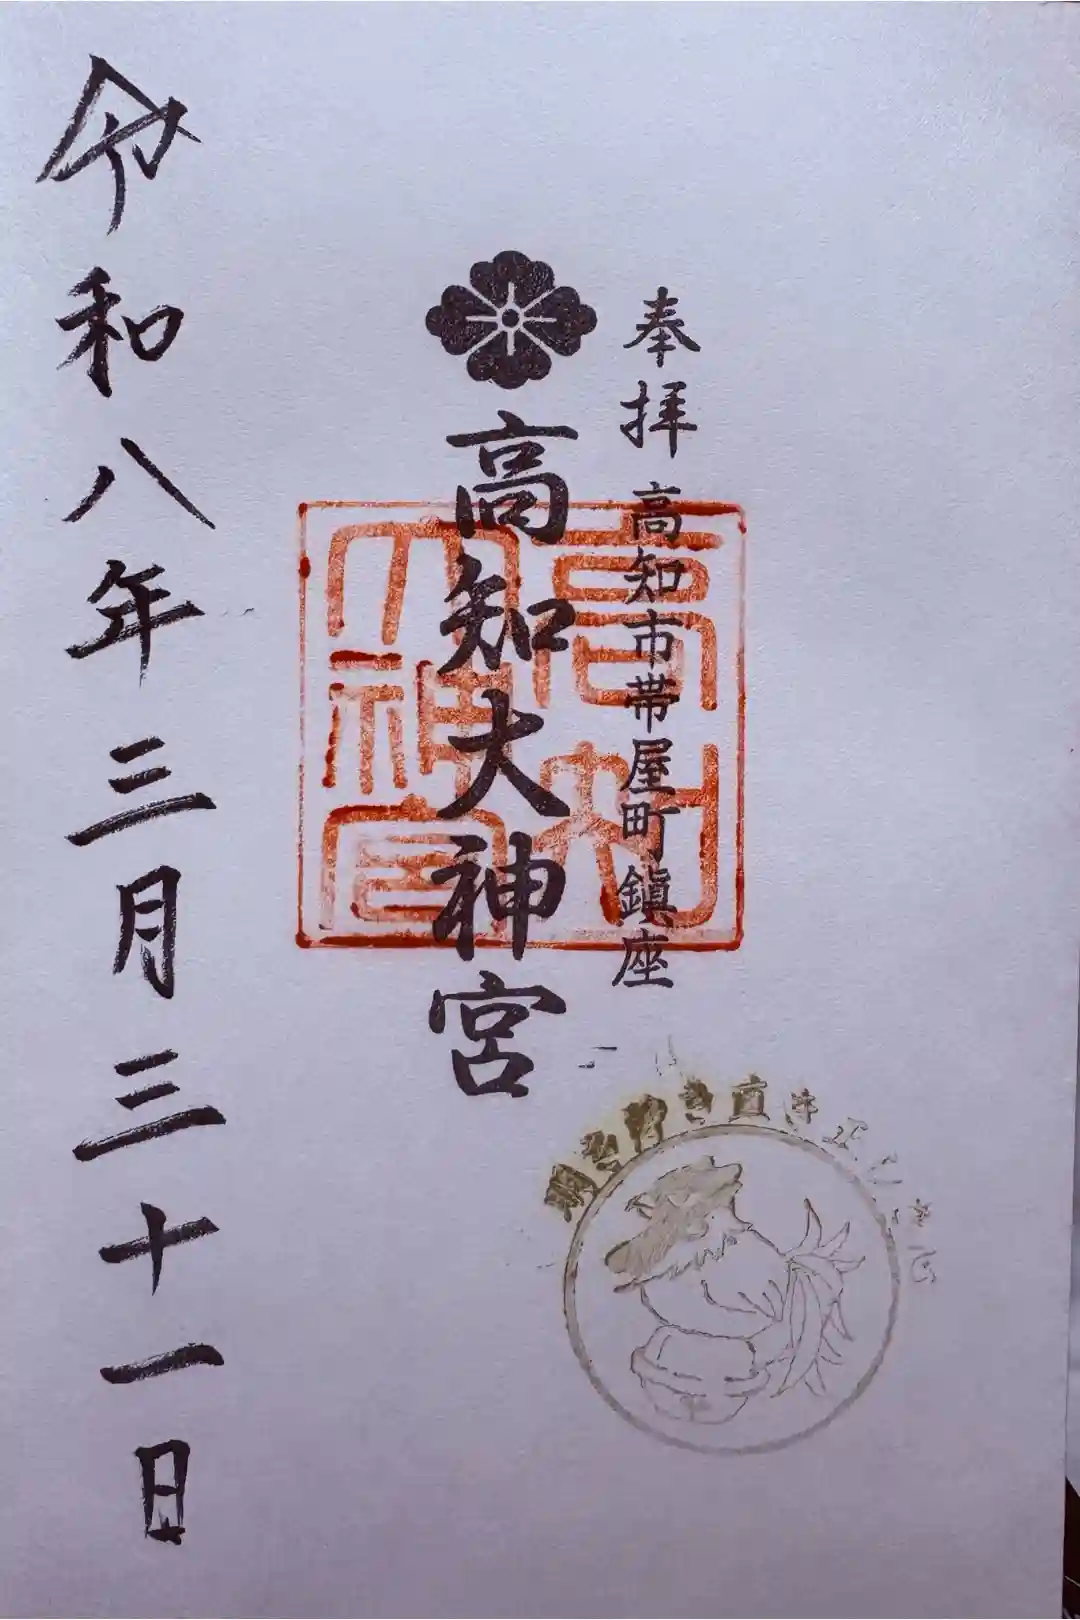 奉拝 高知市帯屋町鎮座
高知大神宮
高知
大神宮
令和八年三月三十一日